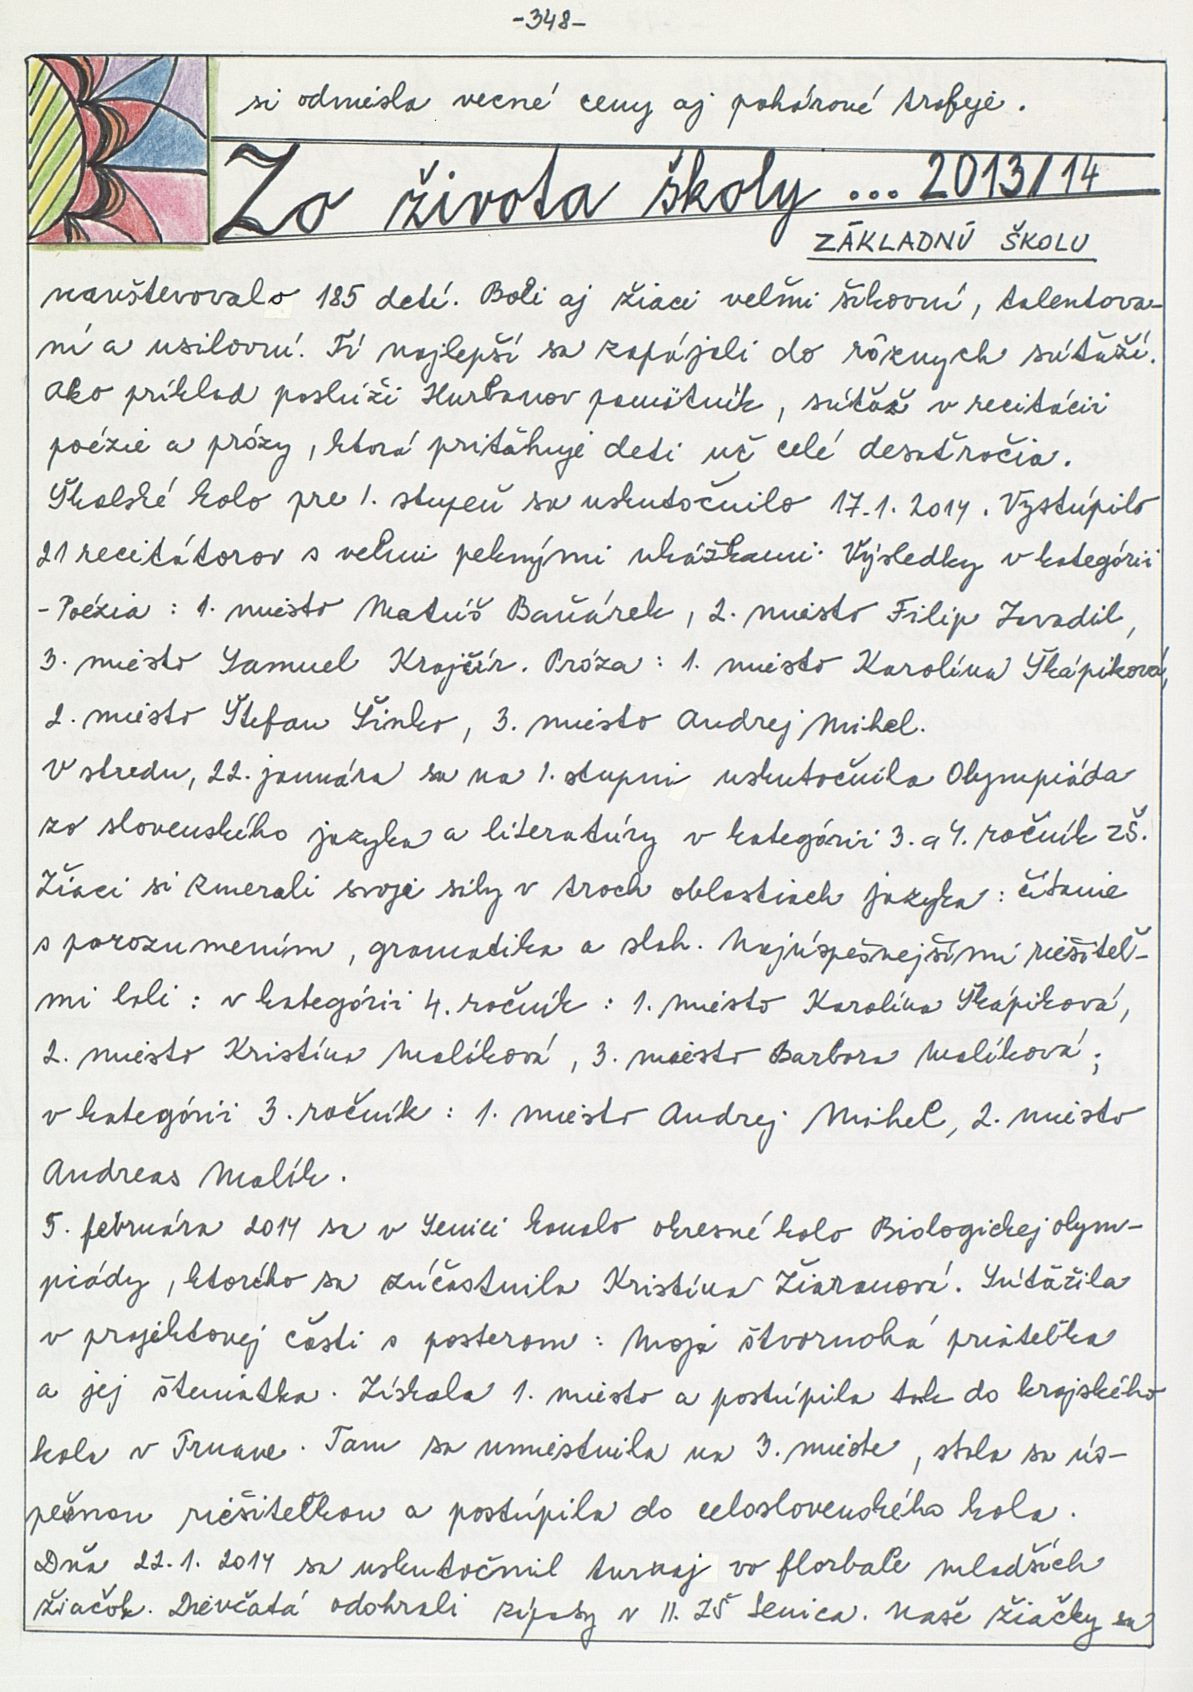 -348-
si odniesla vecné ceny aj pohárové trofeje.
Zo života školy ... 2013/14
ZÁKLADNÚ ŠKOLU
navštevovalo 185 detí. Boli aj žiaci veľmi šikovní, talentova-
ní a usilovní. Tí najlepší sa zapájali do rôznych súťaží.
Ako príklad poslúži Hurbanov pamätník, súťaž v recitácii
poézie a prózy, ktorá priťahuje deti už celé desaťročia.
Školské kolo pre 1. stupeň sa uskutočnilo 17.1.2014. Vystúpilo
21 recitátorov s veľmi peknými ukážkami. Výsledky v kategórii
- Poézia : 1. miesto Matúš Baňárek, 2. miesto Filip Zavadil,
3. miesto Samuel Krajčír. Próza : 1. miesto Karolína Škápiková,
2. miesto Štefan Šinko, 3. miesto Andrej Mihel.
V stredu, 22. januára sa na 1. stupni uskutočnila Olympiáda
zo slovenského jazyka a literatúry v kategórii 3. a 4. ročník ZŠ.
Žiaci si zmerali svoje sily v troch oblastiach jazyka : čítanie
s porozumením, gramatika a sloh. Najúspešnejšími riešiteľ-
mi boli : v kategórii 4. ročník : 1. miesto Karolína Škápiková,
2. miesto Kristína Malíková, 3. miesto Barbora Malíková ;
v kategórii 3. ročník : 1. miesto Andrej Mihel, 2. miesto
Andreas Malík.
5. februára 2014 sa v Senici konalo okresné kolo Biologickej olym-
piády, ktorého sa zúčastnila Kristína Žiaranová. Súťažila
v projektovej časti s posterom : Moja štvornohá priateľka
a jej šteniatka. Získala 1. miesto a postúpila tak do krajského
kola v Trnave. Tam sa umiestnila na 3. mieste, stala sa ús-
pešnou riešiteľkou a postúpila do celoslovenského kola.
Dňa 22.1.2014 sa uskutočnil turnaj vo florbale mladších
žiačok. Dievčatá odohrali zápasy v II. ZŠ Senica. Naše žiačky sa